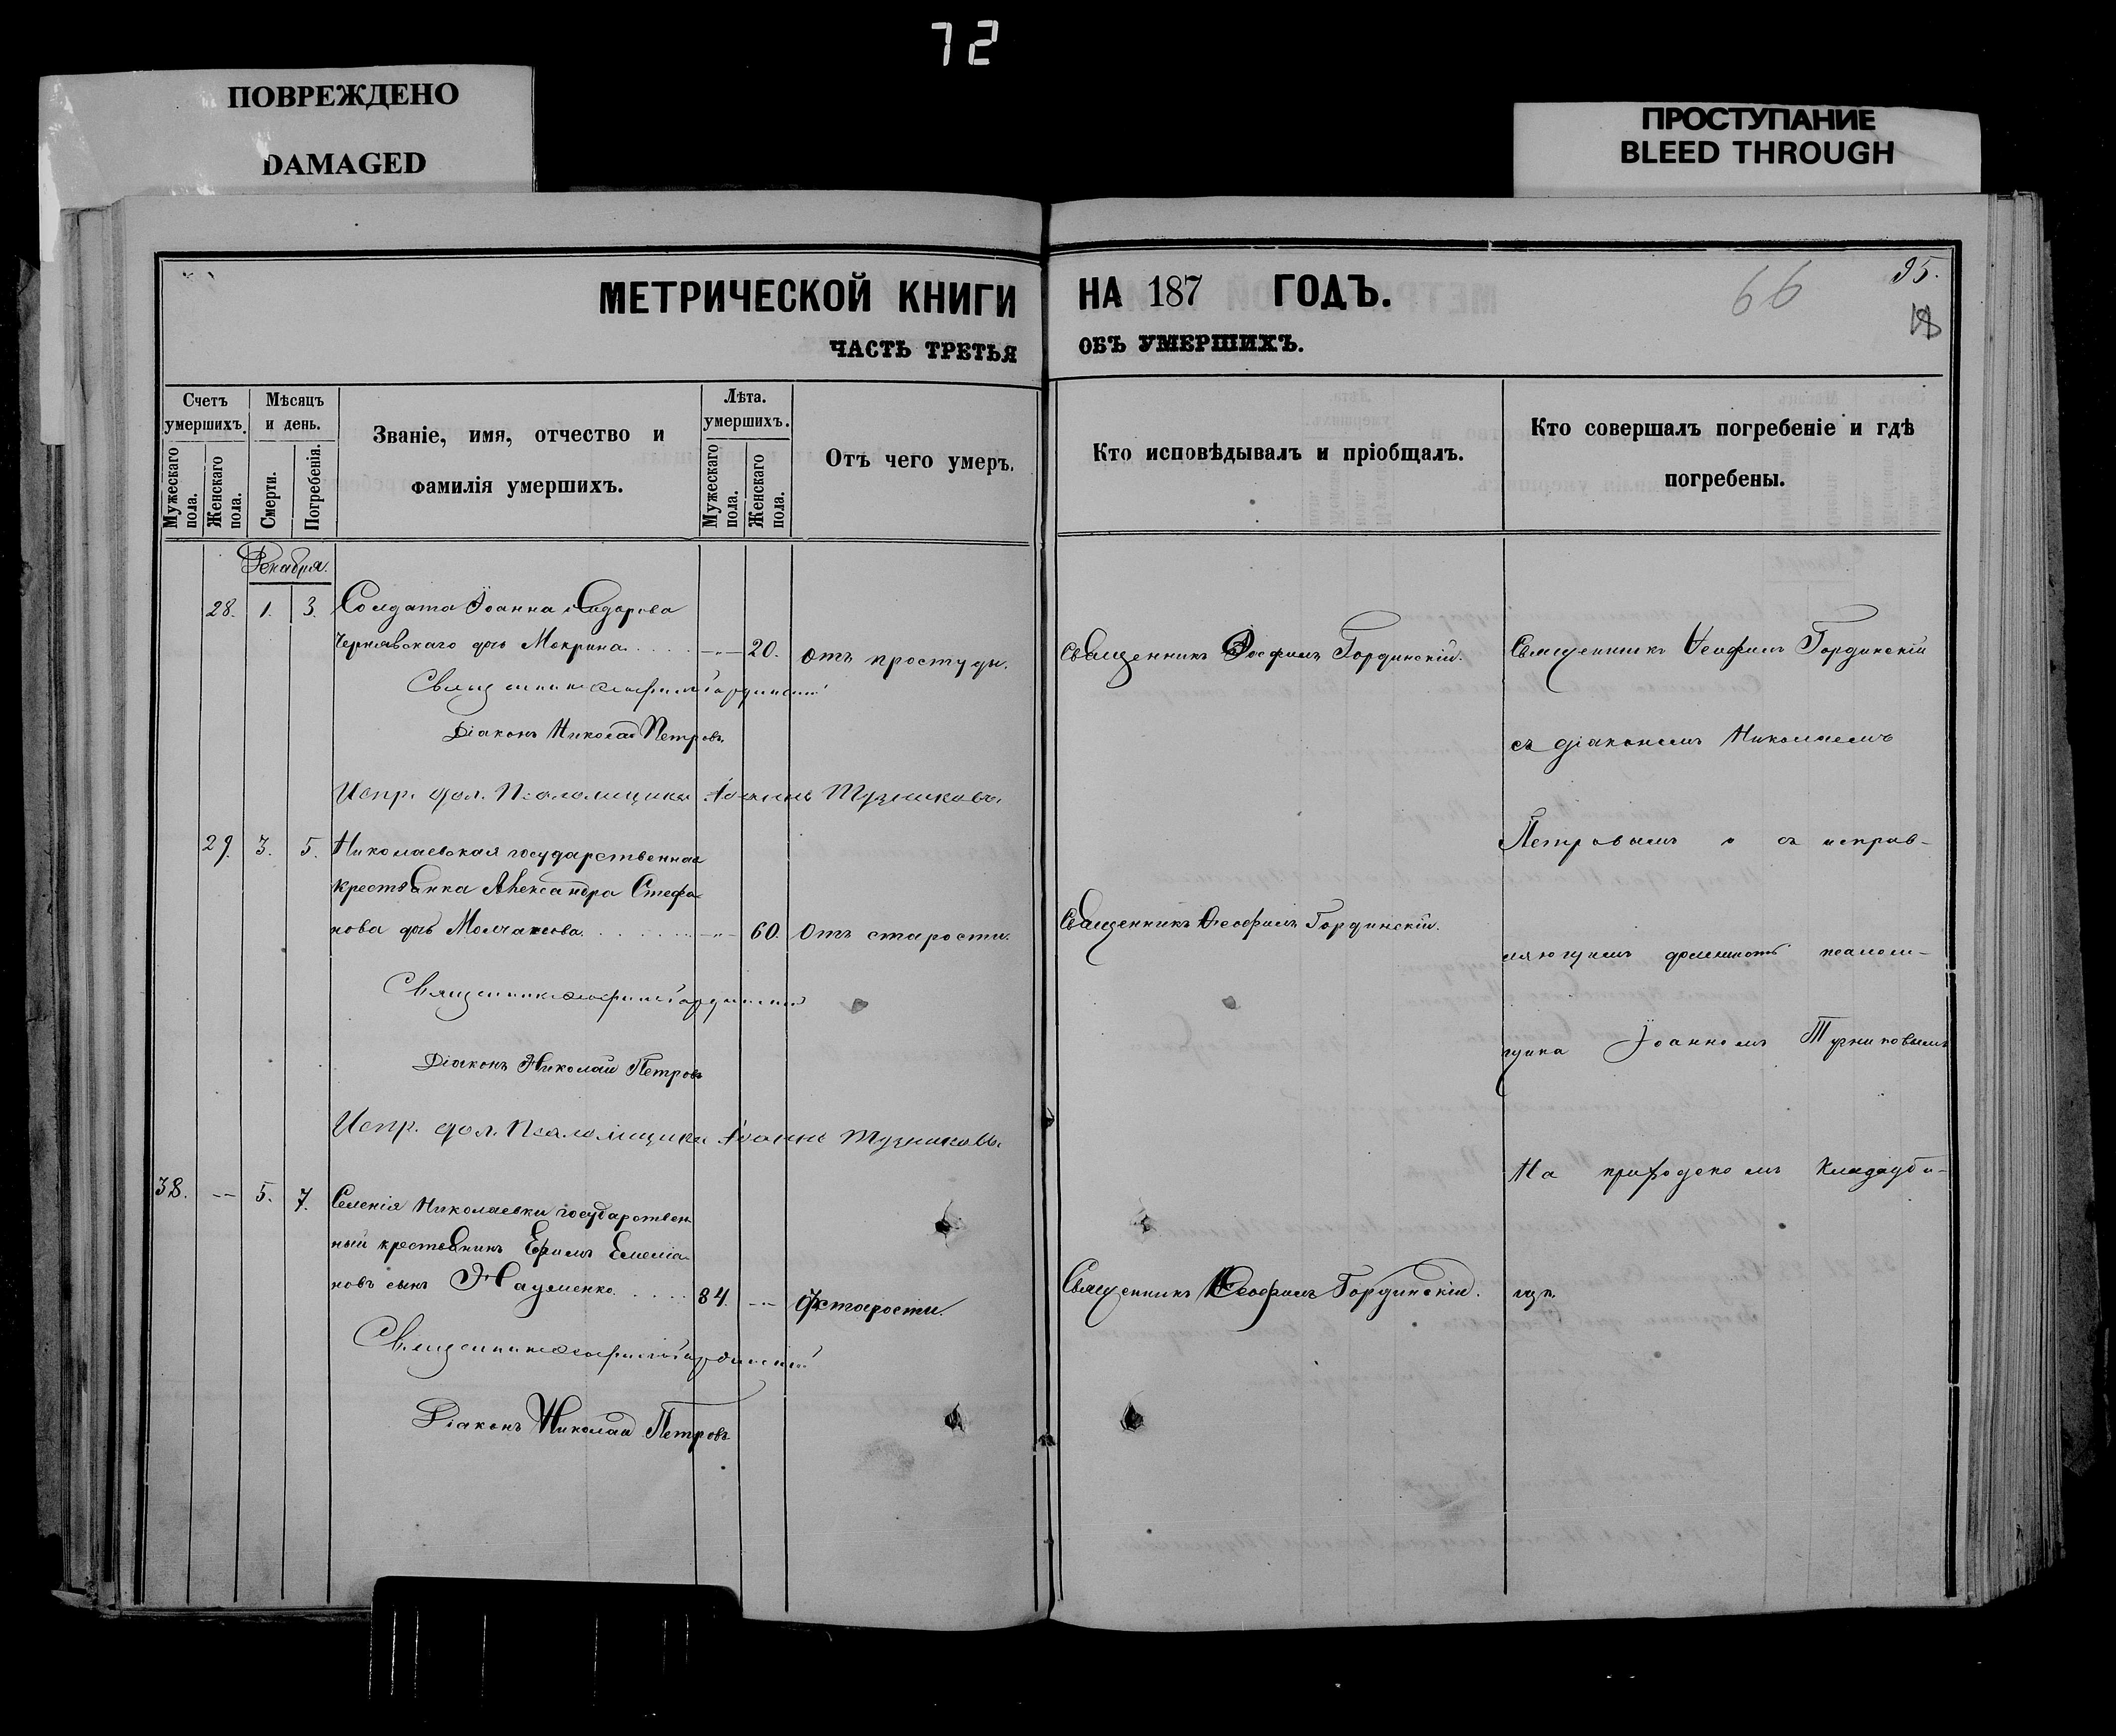 72
ПОВРЕЖДЕНО
DAMAGED
ПРОСТУПАНИЕ
BLEED THROUGH
МЕТРИЧЕСКОЙ КНИГИ НА 187 ГОДЪ.
66
95.
ЧАСТЬ ТРЕТЬЯ ОБЪ УМЕРШИХЪ.
Счетъ умершихъ.
Мужескаго пола.
Женскаго пола.
Мѣсяцъ и день.
Смерти.
Погребенія.
Званіе, имя, отчество и
фамилія умершихъ.
Лѣта. умершихъ.
Мужескаго пола.
Женскаго пола.
Отъ чего умеръ.
Кто исповѣдывалъ и пріобщалъ.
Кто совершалъ погребеніе и гдѣ
погребены.
Декабря.
28. 1. 3. Солдата Іоанна Сидорова
Чернявскаго дочь Мокрина. 20. Отъ простуды.
Священникъ Ѳеофилъ Гординскій
Діаконъ Николай Петровъ.
Испр. дол. Псаломщика Іоаннъ Тузниковъ.
29. 3. 5. Николаевская государственная
крестьянка Александра Стефа-
нова дочь Молчанова. 60. Отъ старости.
Священникъ Ѳеофилъ Гординскій
Діаконъ Николай Петровъ
Испр. дол. Псаломщика Іоаннъ Тузниковъ.
38. -- 5. 7. Селенія Николаевки государствен-
ный крестьянинъ Ефимъ Емеліа-
новъ сынъ Науменко. 84. -- От старости.
Священникъ Ѳеофилъ Гординскій
Діаконъ Николай Петровъ
Священникъ Ѳеофилъ Гординскій.
Священникъ Ѳеофилъ Гординскій.
Священникъ Ѳеофилъ Гординскій.
Священникъ Ѳеофилъ Гординскій
съ діакономъ Николаемъ
Петровымъ и съ исправ-
ляющимъ должность псалом-
щика Іоанномъ Тузниковымъ
На приходскомъ кладби-
щѣ.